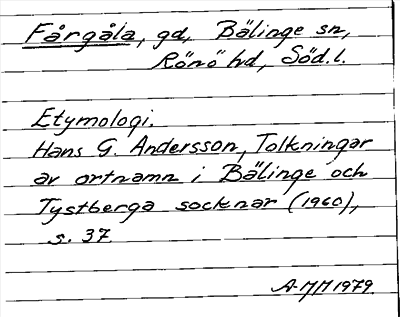 Fårgåla, gd, Bälinge sn,
Rönö hd, Söd.l.
Etymologi.
Hans G. Andersson, Tolkningar
av ortnamn i Bälinge och
Tystberga socknar (1960),
s. 37
A-MM 1979.